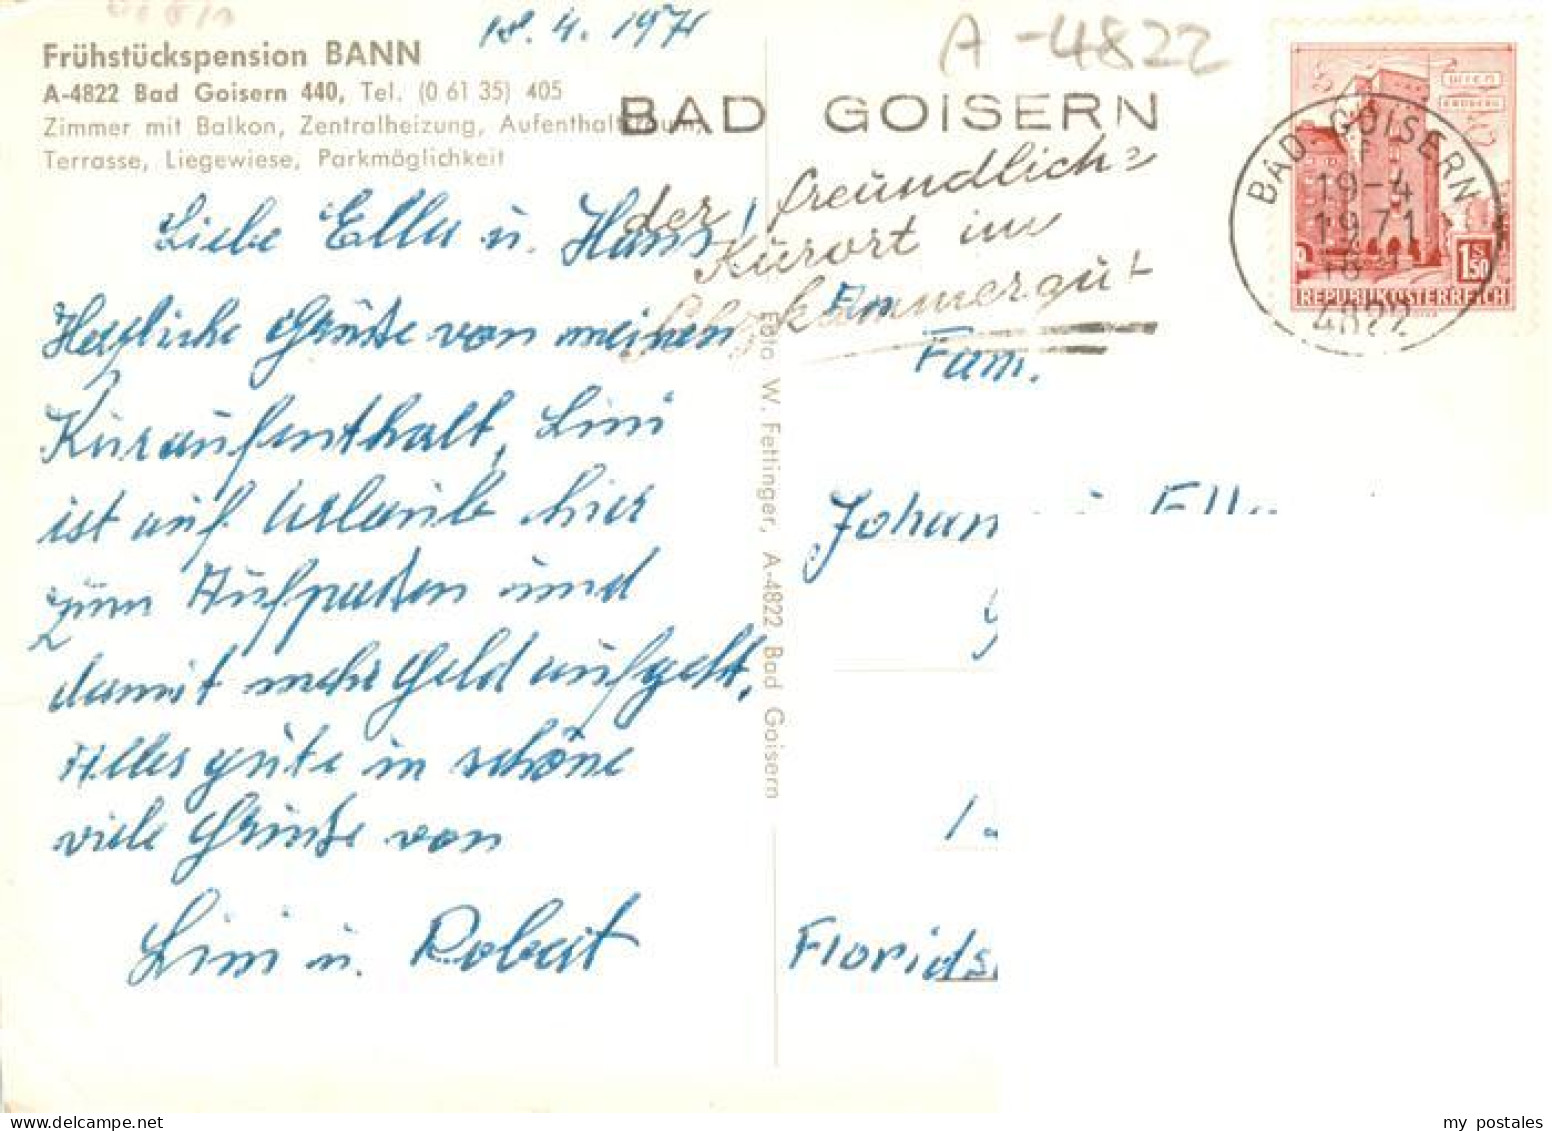 18. 4. 1971
A-4822
Frühstückspension BANN
A-4822 Bad Goisern 440, Tel. (0 61 35) 405
Zimmer mit Balkon, Zentralheizung, Aufenthaltsraum,
Terrasse, Liegewiese, Parkmöglichkeit
BAD GOISERN
der freundliche
Kurort im
Salzkammergut
WIEN
ERDBERG
1.50
S
REPUBLIK ÖSTERREICH
BAD GOISERN
19-4
1971
4822
Liebe Ella u. Hans!
Herzliche Grüße von meinen
Kuraufenthalt, Lini
ist auf Urlaub hier
zum Aufpassen und
damit mehr Geld aufgeht.
Alles gute in schöne
viele Grüße von
Lini u. Robert
Foto W. Fettinger, A-4822 Bad Goisern
An
Fam.
Johan
Ella
Florids
my postales